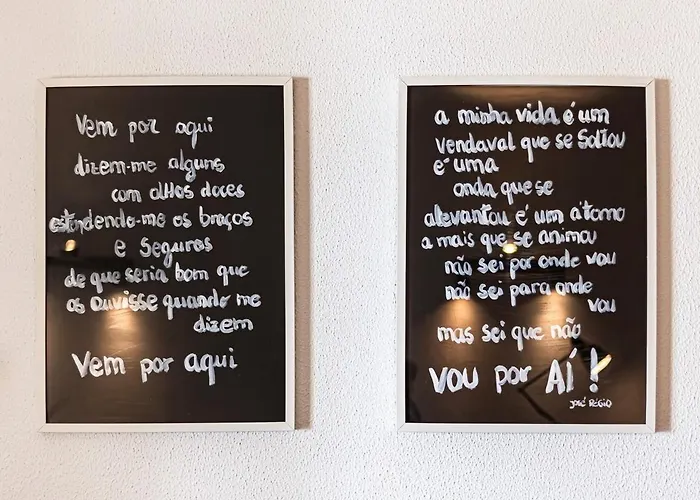 Vem por aqui
dizem-me alguns
com olhos doces
estendendo-me os braços
e seguros
de que seria bom que
os ouvisse quando me
dizem
Vem por aqui
a minha vida é um
vendaval que se soltou
é uma
onda que se
alevantou é um átomo
a mais que se animou
não sei por onde vou
não sei para onde
vou
mas sei que não
VOU por AÍ!
JOSÉ RÉGIO